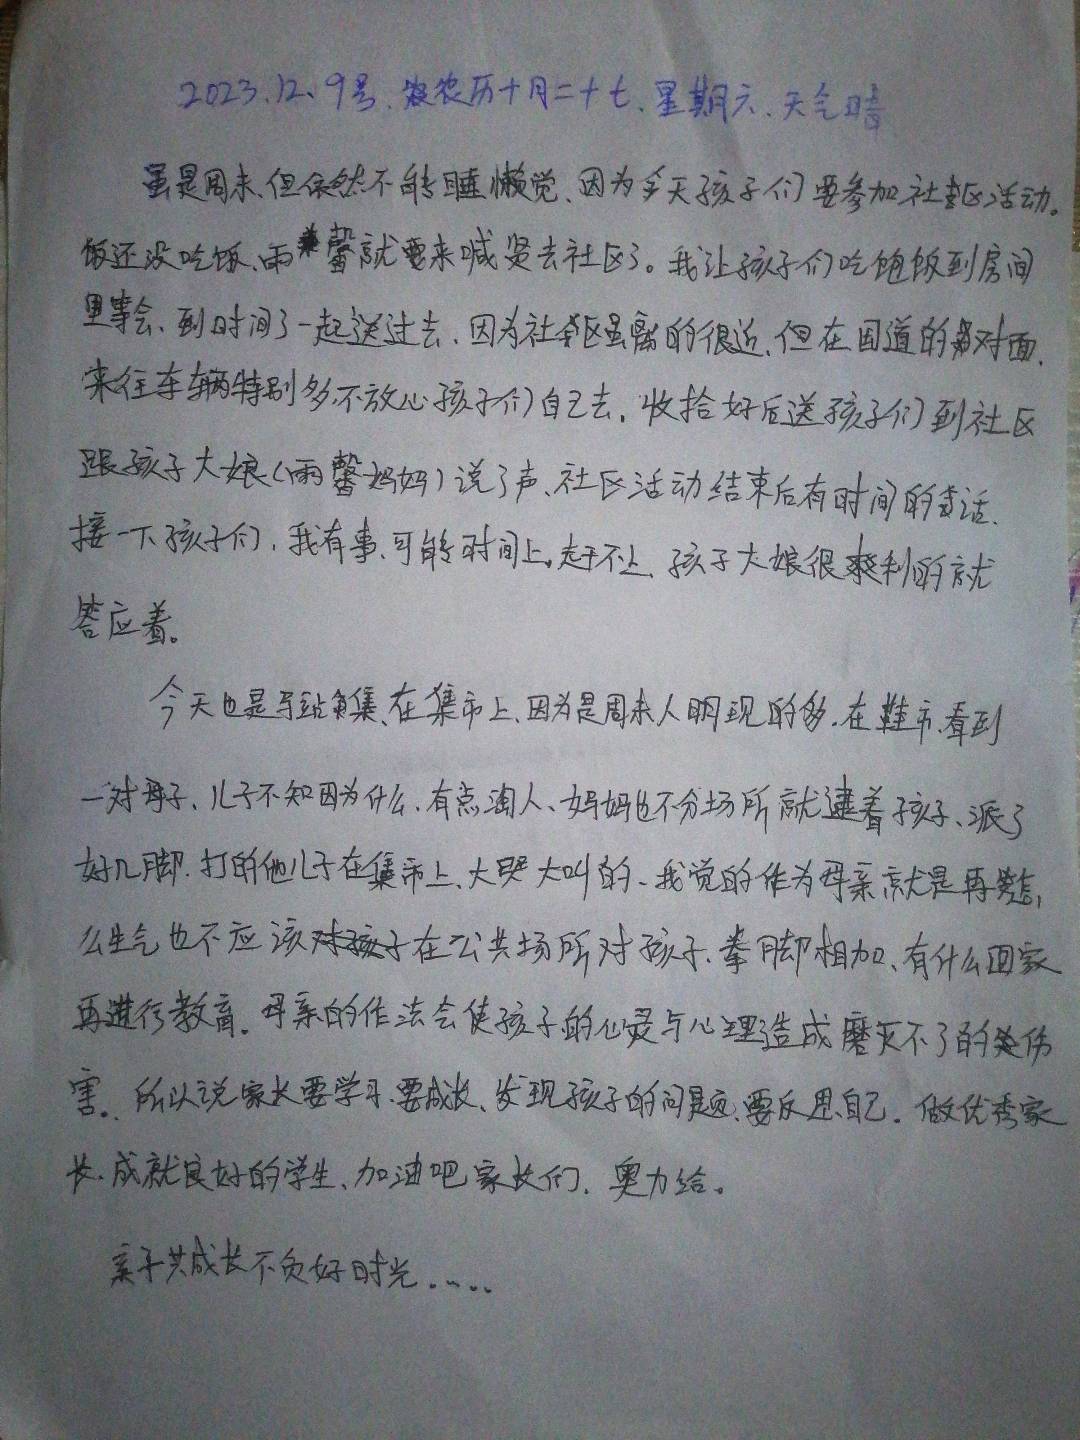 2023.12.9号.农历十月二十七、星期六、天气晴
虽是周末、但依然不能睡懒觉、因为今天孩子们要参加社区活动。
饭还没吃饭、雨馨就要来喊贤去社区了。我让孩子们吃饱饭到房间
里等会、到时间了一起送过去、因为社区虽离的很近、但在国道的对面、
来往车辆特别多,不放心孩子们自己去.收拾好后送孩子们到社区
跟孩子大娘(雨馨妈妈)说了声、社区活动结束后有时间的话、
接一下孩子们,我有事、可能时间上赶不上、孩子大娘很爽利的就
答应着。
今天也是集、在集市上、因为是周末人明现的多.在鞋市、看到
一对母子、儿子不知因为什么、有点淘人、妈妈也不分场所就逮着孩子、派了
好几脚.打的他儿子在集市上、大哭大叫的、我觉的作为母亲就是再怎
么生气也不应该在公共场所对孩子、拳脚相加、有什么回家
再进行教育。母亲的作法会使孩子的心灵与心理造成磨灭不了的伤
害。所以说家长要学习、要成长、发现孩子的问题、要反思、自己。做优秀家
长.成就良好的学生、加油吧家长们、奥力给。
亲子共成长不负好时光.....